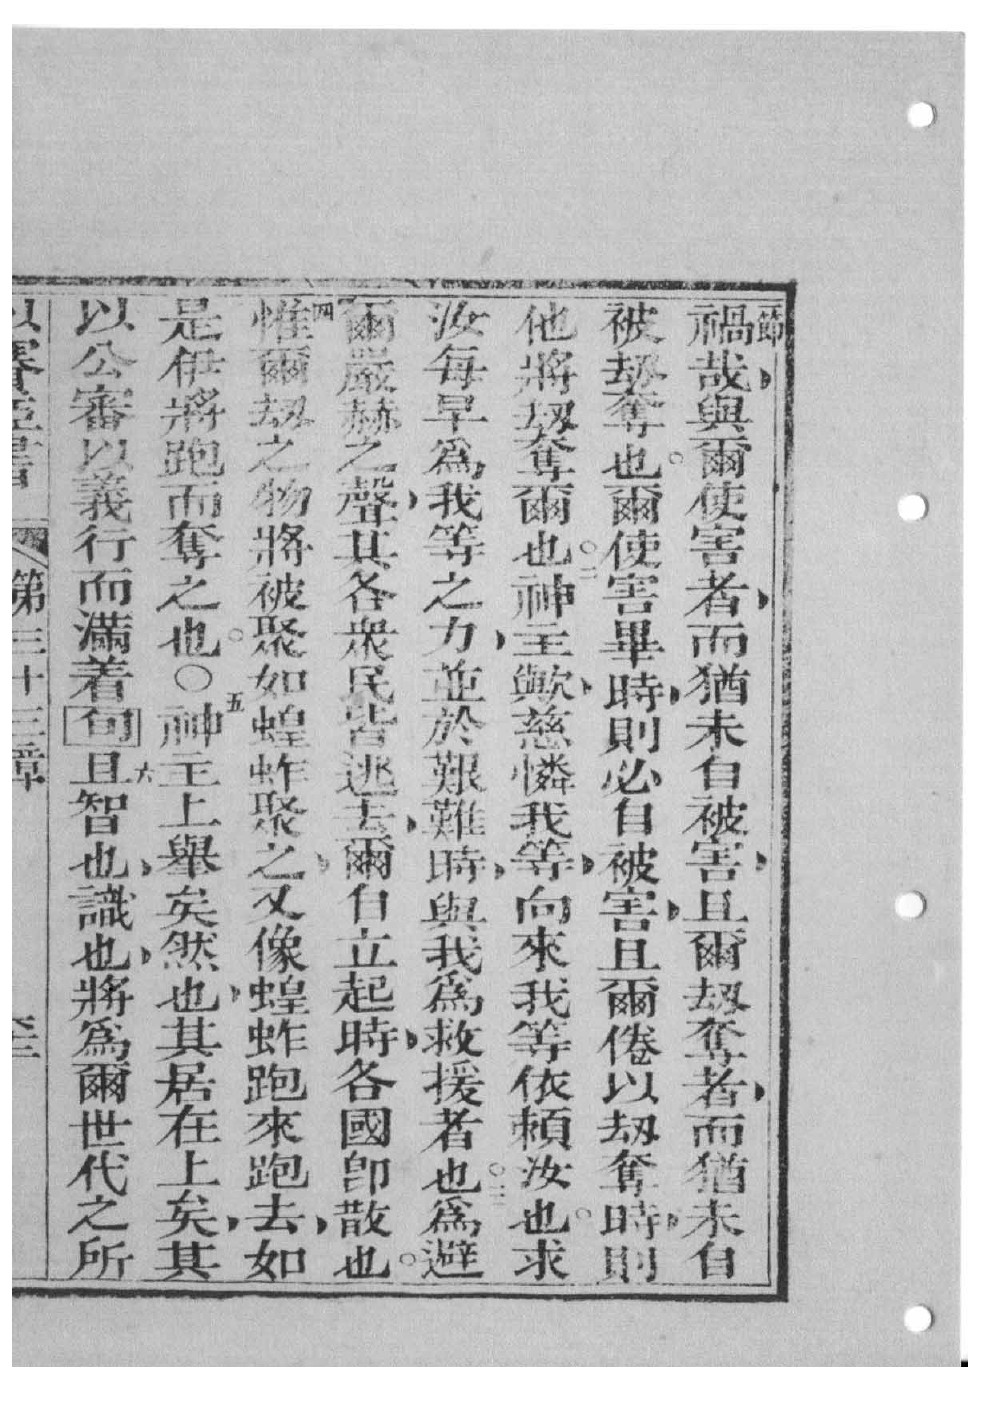 一節
禍哉與爾使害者而猶未自被害且爾刼奪者而猶未自
被刼奪也。爾使害畢時則必自被害且爾倦以刼奪時則
他將刼奪爾也。二神主歟慈憐我等向來我等依賴汝也。求
汝每早爲我等之力並於艱難時與我爲救援者也。三爲避
爾嚴赫之聲其各衆民皆逃去爾自立起時各國卽散也。
四惟爾刼之物將被聚如蝗蚱聚之又像蝗蚱跑來跑去如
是伊將跑而奪之也。○五神主上舉矣然也其居在上矣其
以公審以義行而滿着旬六且智也識也將爲爾世代之所
以賽亞書 第三十三章